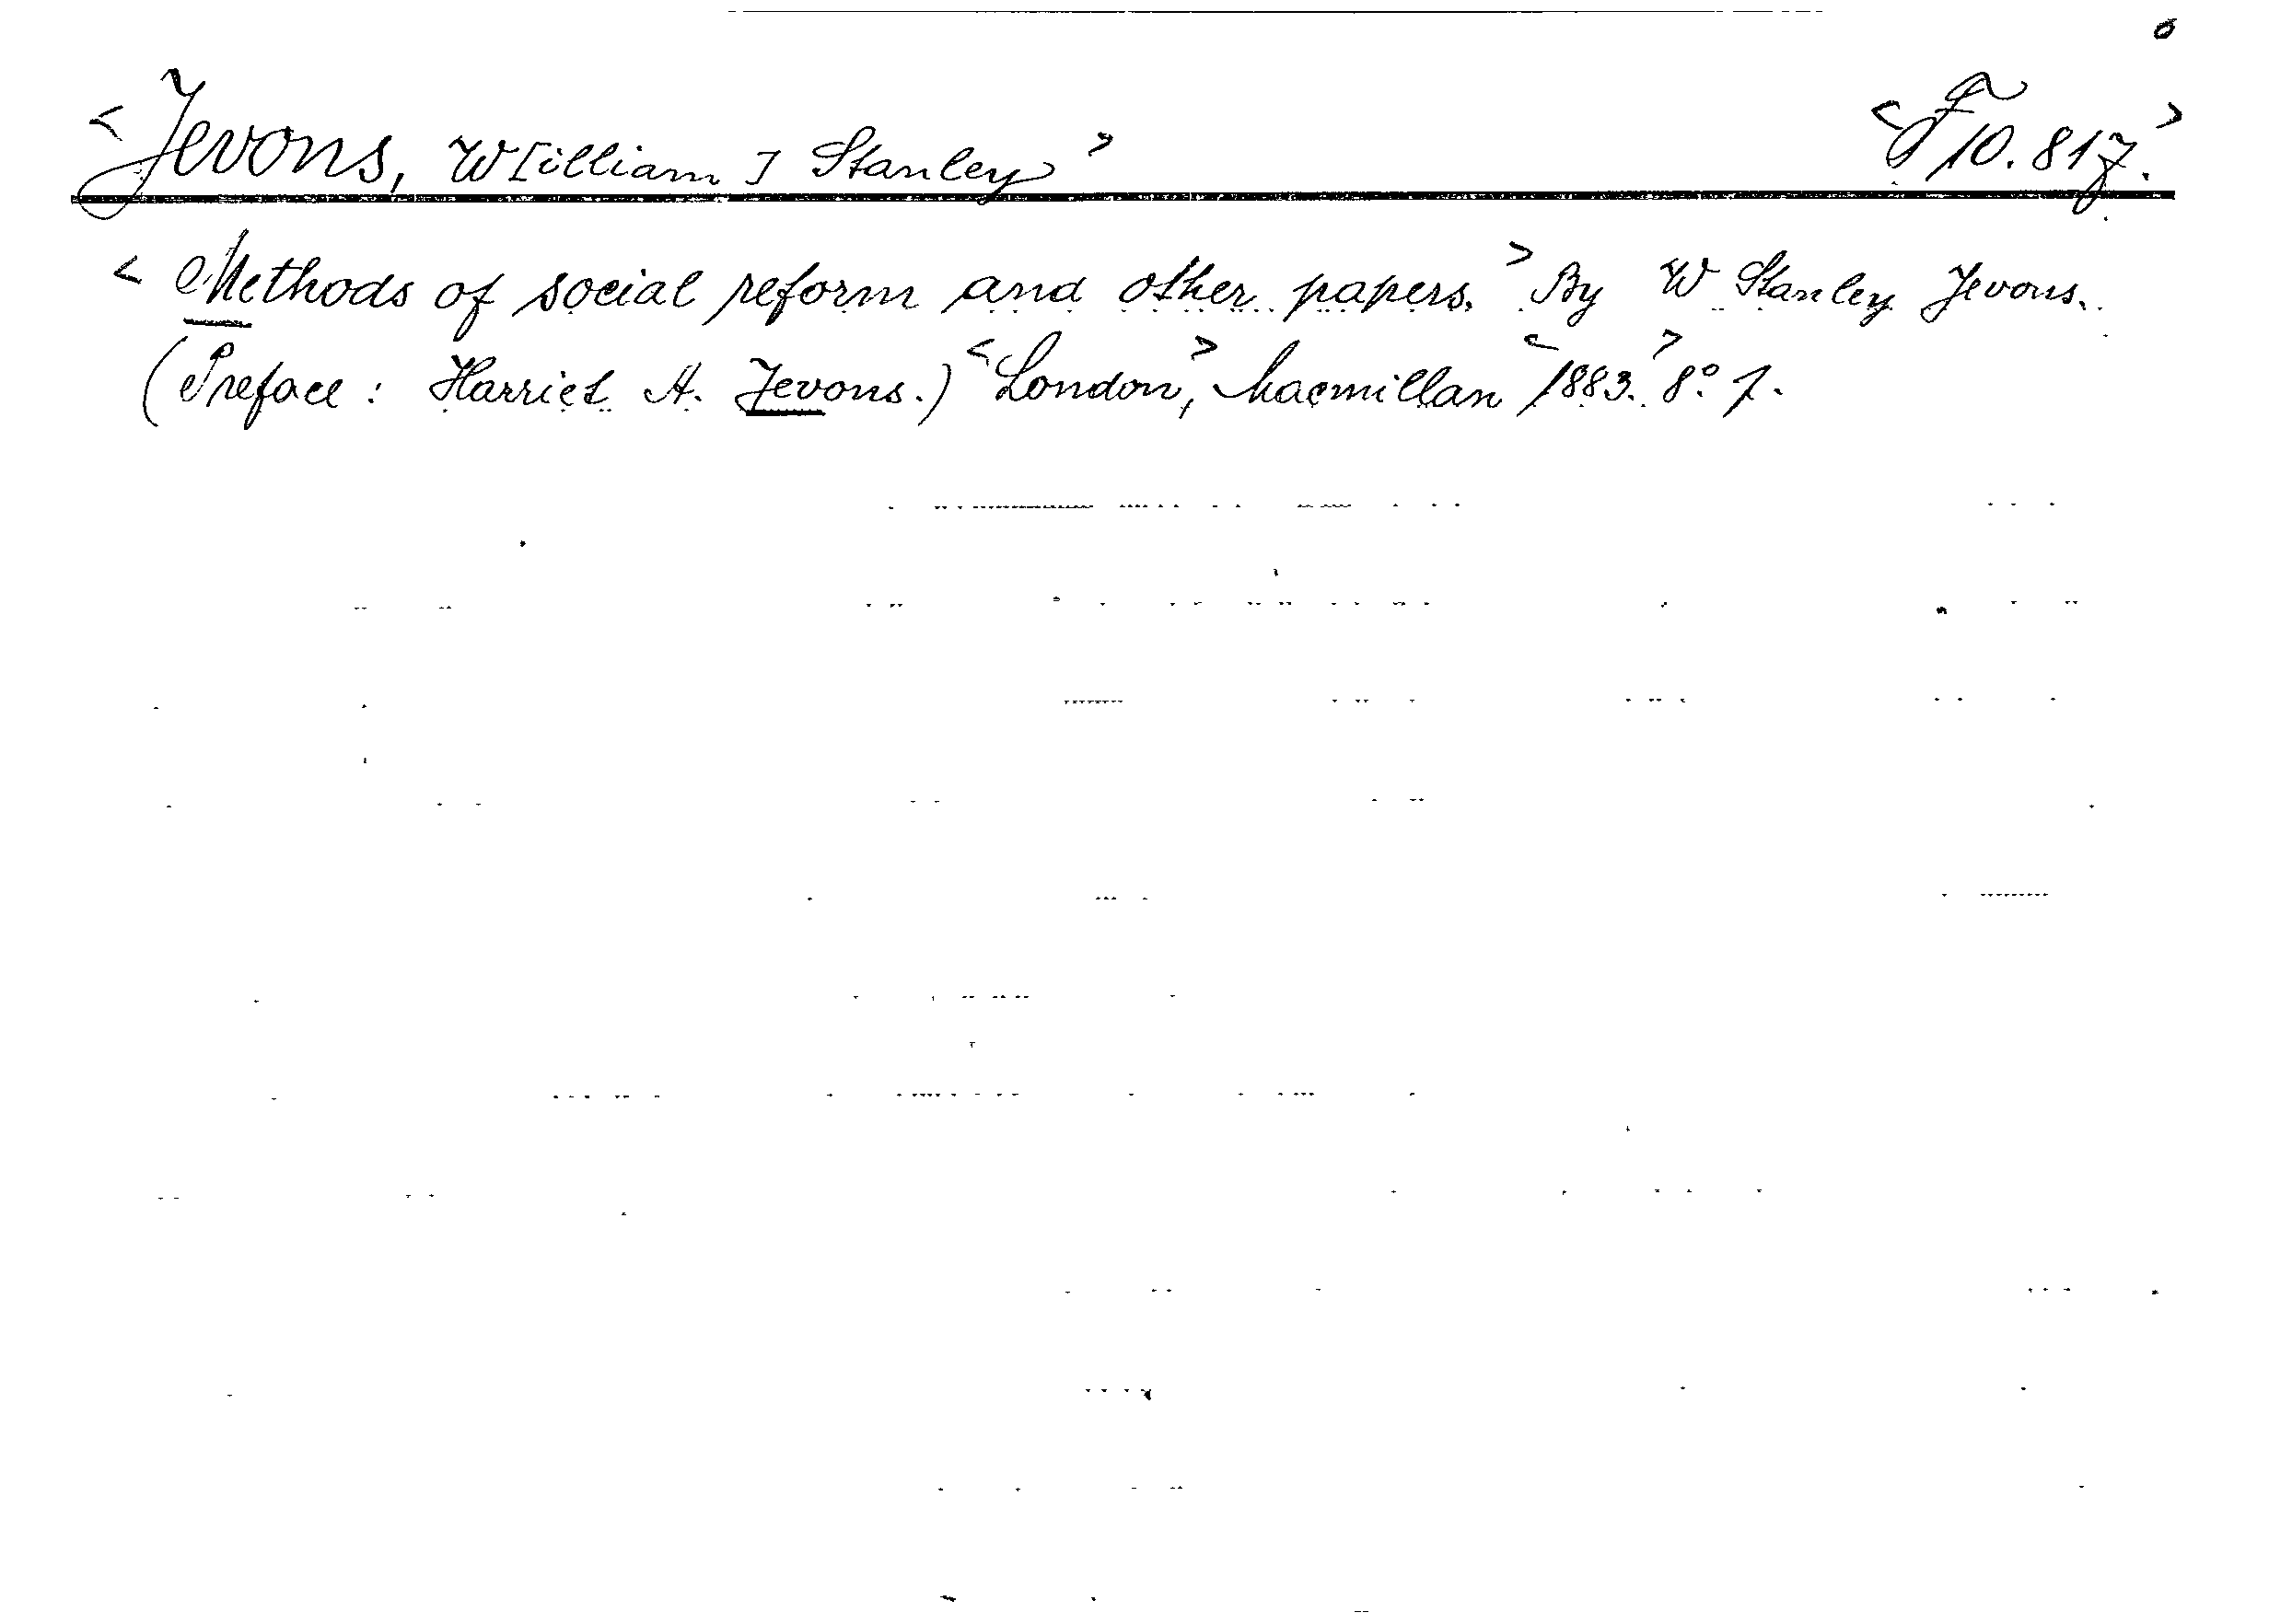 <Jevons, W[illiam] Stanley> <F 10.817.>
<Methods of social reform and other papers.> By W Stanley Jevons.
(Preface: Harriet A. Jevons.) <London>, Macmillan <1883.> 8° 1.